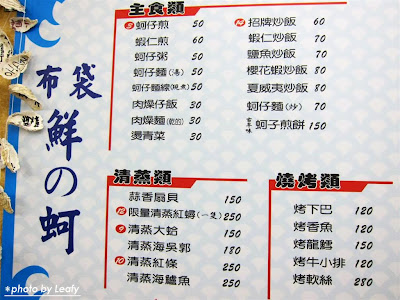 布袋
鮮の蚵
主食類
③ 蚵仔煎 50
蝦仁煎 60
蚵仔粥 50
蚵仔麵(湯) 50
蚵仔麵線(現煮) 50
肉燥仔飯 30
肉燥麵(乾的) 30
燙青菜 30
⑭ 招牌炒飯 60
蝦仁炒飯 60
鹽魚炒飯 70
櫻花蝦炒飯 80
夏威夷炒飯 80
蚵仔麵(炒) 70
蚵子煎餅 150
清蒸類
蒜香扇貝 150
⑫ 限量清蒸紅蟳(一隻) 250
⑨ 清蒸大蛤 150
清蒸海吳郭 180
⑩ 清蒸紅條 250
清蒸海鱸魚 250
燒烤類
烤下巴 120
烤香魚 120
烤龍鱈 150
烤牛小排 120
烤軟絲 280
*photo by Leafy